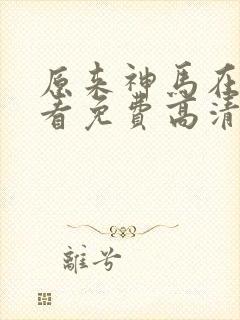 原来神马在
看免費高清
離兮